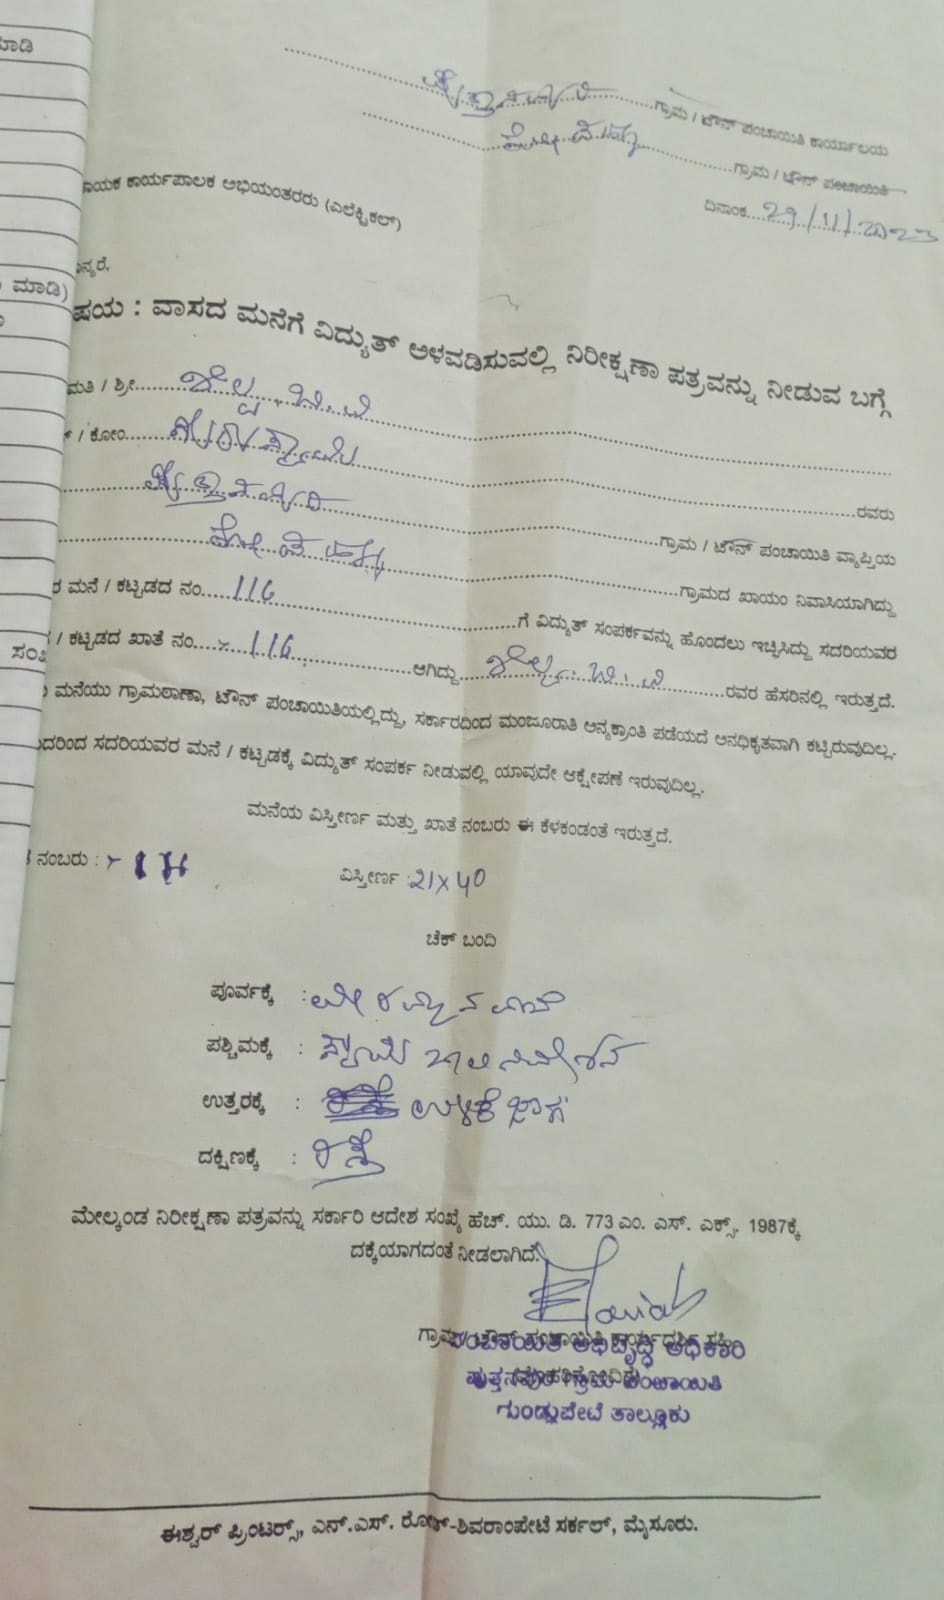 ಮಾಡಿ
ಗ್ರಾಮ / ಟೌನ್ ಪಂಚಾಯಿತಿ ಕಾರ್ಯಾಲಯ
ಗ್ರಾಮ / ಟೌನ್ ಪಂಚಾಯಿತಿ
ದಿನಾಂಕ 29/11/2023
ಾಯಕ ಕಾರ್ಯಪಾಲಕ ಅಭಿಯಂತರರು (ಎಲೆಕ್ಟ್ರಿಕಲ್)
ನ್ಯರೆ.
ಮಾಡಿ)
ಷಯ : ವಾಸದ ಮನೆಗೆ ವಿದ್ಯುತ್ ಅಳವಡಿಸುವಲ್ಲಿ ನಿರೀಕ್ಷಣಾ ಪತ್ರವನ್ನು ನೀಡುವ ಬಗ್ಗೆ
ಮತಿ / ಶ್ರೀ
/ ಕೋಂ ರವರು
ಗ್ರಾಮ / ಟೌನ್ ಪಂಚಾಯಿತಿ ವ್ಯಾಪ್ತಿಯ
ಗ್ರಾಮದ ಖಾಯಂ ನಿವಾಸಿಯಾಗಿದ್ದು
ರ ಮನೆ / ಕಟ್ಟಡದ ನಂ. 116 ಗೆ ವಿದ್ಯುತ್ ಸಂಪರ್ಕವನ್ನು ಹೊಂದಲು ಇಚ್ಛಿಸಿದ್ದು ಸದರಿಯವರ
/ ಕಟ್ಟಡದ ಖಾತೆ ನಂ. 116 ಆಗಿದ್ದು ರವರ ಹೆಸರಿನಲ್ಲಿ ಇರುತ್ತದೆ.
ಮನೆಯು ಗ್ರಾಮಠಾಣಾ, ಟೌನ್ ಪಂಚಾಯಿತಿಯಲ್ಲಿದ್ದು, ಸರ್ಕಾರದಿಂದ ಮಂಜೂರಾತಿ ಅನ್ಯಕ್ರಾಂತಿ ಪಡೆಯದೆ ಅನಧಿಕೃತವಾಗಿ ಕಟ್ಟಿರುವುದಿಲ್ಲ.
ದರಿಂದ ಸದರಿಯವರ ಮನೆ / ಕಟ್ಟಡಕ್ಕೆ ವಿದ್ಯುತ್ ಸಂಪರ್ಕ ನೀಡುವಲ್ಲಿ ಯಾವುದೇ ಆಕ್ಷೇಪಣೆ ಇರುವುದಿಲ್ಲ.
ಮನೆಯ ವಿಸ್ತೀರ್ಣ ಮತ್ತು ಖಾತೆ ನಂಬರು ಈ ಕೆಳಕಂಡಂತೆ ಇರುತ್ತದೆ.
ನಂಬರು :
ವಿಸ್ತೀರ್ಣ : 21 x 40
ಚೆಕ್ ಬಂದಿ
ಪೂರ್ವಕ್ಕೆ :
ಪಶ್ಚಿಮಕ್ಕೆ : ಸ್ವಾಮಿ ಖಾಲಿ ನಿವೇಶನ
ಉತ್ತರಕ್ಕೆ : ಉಳಿಕೆ ಜಾಗ
ದಕ್ಷಿಣಕ್ಕೆ : ರಸ್ತೆ
ಮೇಲ್ಕಂಡ ನಿರೀಕ್ಷಣಾ ಪತ್ರವನ್ನು ಸರ್ಕಾರಿ ಆದೇಶ ಸಂಖ್ಯೆ ಹೆಚ್. ಯು. ಡಿ. 773 ಎಂ. ಎಸ್. ಎಕ್ಸ್. 1987ಕ್ಕೆ
ದಕ್ಕೆಯಾಗದಂತೆ ನೀಡಲಾಗಿದೆ.
ಪಂಚಾಯಿತಿ ಅಭಿವೃದ್ಧಿ ಅಧಿಕಾರಿ
ಗ್ರಾಮ ಪಂಚಾಯಿತಿ
ಗುಂಡ್ಲುಪೇಟೆ ತಾಲ್ಲೂಕು
ಈಶ್ವರ್ ಪ್ರಿಂಟರ್ಸ್, ಎನ್.ಎಸ್. ರೋಡ್-ಶಿವರಾಂಪೇಟೆ ಸರ್ಕಲ್, ಮೈಸೂರು.